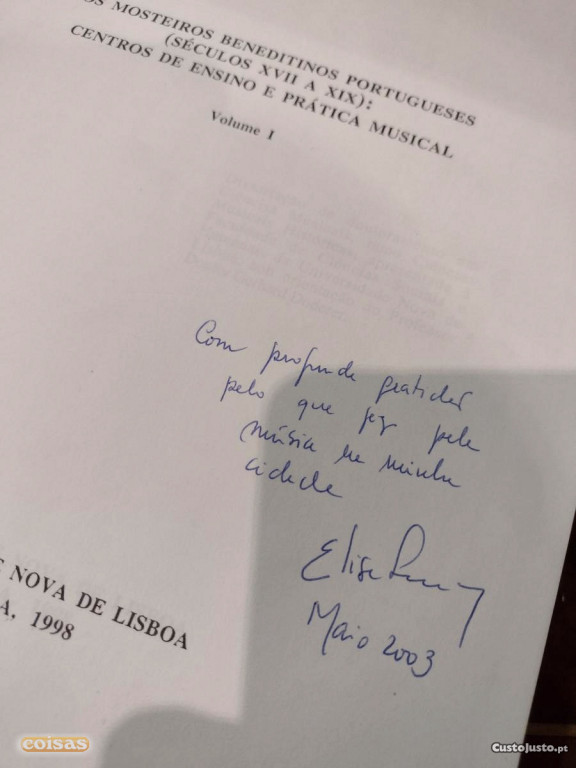 OS MOSTEIROS BENEDITINOS PORTUGUESES
(SÉCULOS XVII A XIX):
CENTROS DE ENSINO E PRÁTICA MUSICAL
Volume I
Com profunda gratidão
pelo que fez pela
música na minha
cidade
Elisa
Maio 2003
NOVA DE LISBOA
A, 1998
coisas
CustoJusto.pt